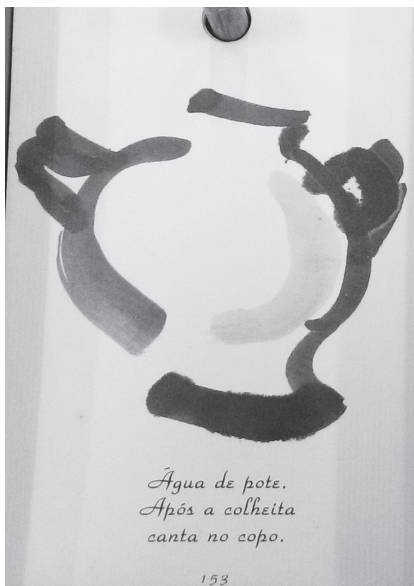 Água de pote.
Após a colheita
canta no copo.
153